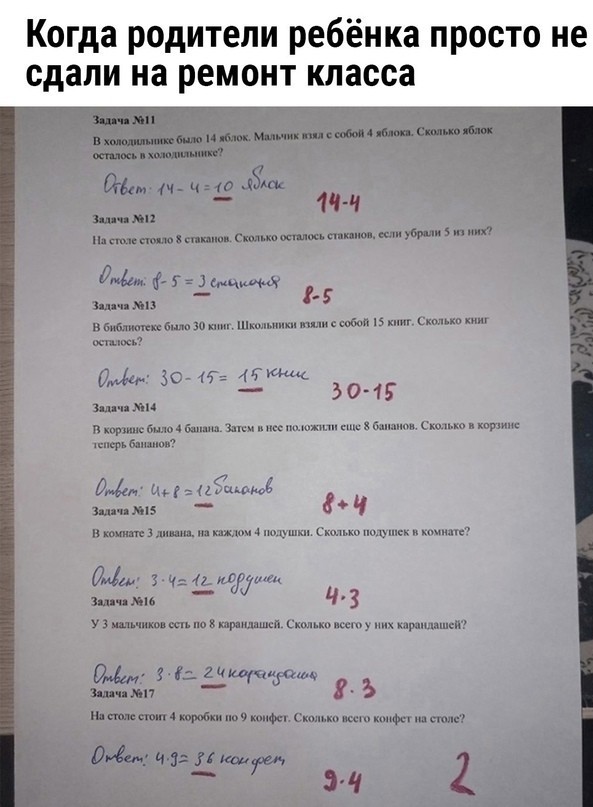 Когда родители ребёнка просто не
сдали на ремонт класса
Задача №11
В холодильнике было 14 яблок. Мальчик взял с собой 4 яблока. Сколько яблок
осталось в холодильнике?
Ответ: 14 - 4 = 10 яблок
14-4
Задача №12
На столе стояло 8 стаканов. Сколько осталось стаканов, если убрали 5 из них?
Ответ: 8 - 5 = 3 стакана
8-5
Задача №13
В библиотеке было 30 книг. Школьники взяли с собой 15 книг. Сколько книг
осталось?
Ответ: 30 - 15 = 15 книг
30-15
Задача №14
В корзине было 4 банана. Затем в нее положили еще 8 бананов. Сколько в корзине
теперь бананов?
Ответ: 4+8 = 12 бананов
8+4
Задача №15
В комнате 3 дивана, на каждом 4 подушки. Сколько подушек в комнате?
Ответ: 3·4 = 12 подушек
4·3
Задача №16
У 3 мальчиков есть по 8 карандашей. Сколько всего у них карандашей?
Ответ: 3·8 = 24 карандаша
8·3
Задача №17
На столе стоит 4 коробки по 9 конфет. Сколько всего конфет на столе?
Ответ: 4·9 = 36 конфет
9·4
2